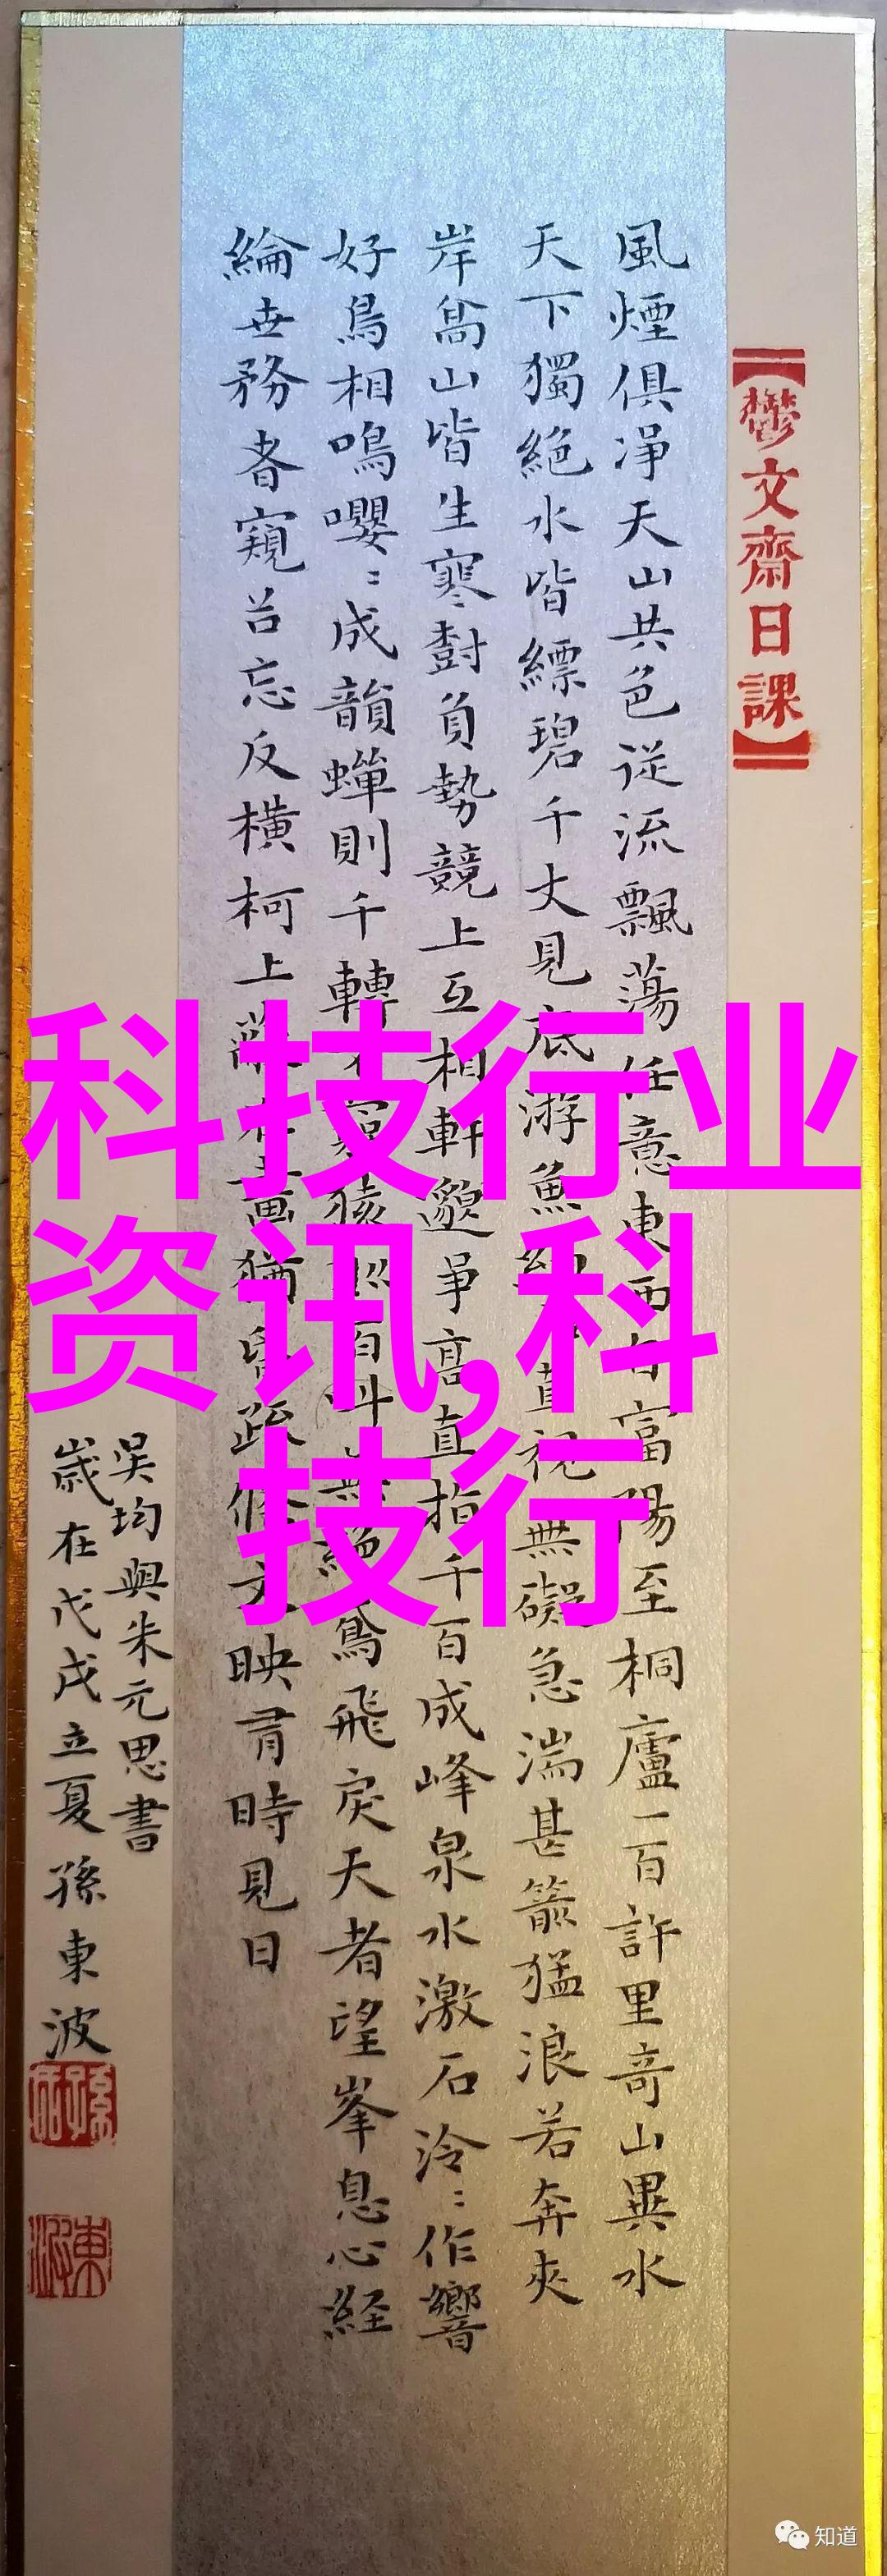 【鬱文齋日課】
風煙俱淨天山共色從流飄蕩任意東西自富陽至桐廬一百許里奇山異水
天下獨絕水皆縹碧千丈見底游魚細 直視無礙急湍甚箭猛浪若奔夾
岸高山皆生寒樹負勢競上互相軒邈爭高直指千百成峰泉水激石泠〻作響
好鳥相鳴嚶〻成韻蟬則千轉不窮猿則百叫無絕鳶飛戾天者望峯息心經
綸世務者窺谷忘反橫柯上蔽在晝猶昏疏條交映有時見日
吳均與朱元思書
歲在戊戌立夏孫東波
科技行业
资讯,科
技行
知道